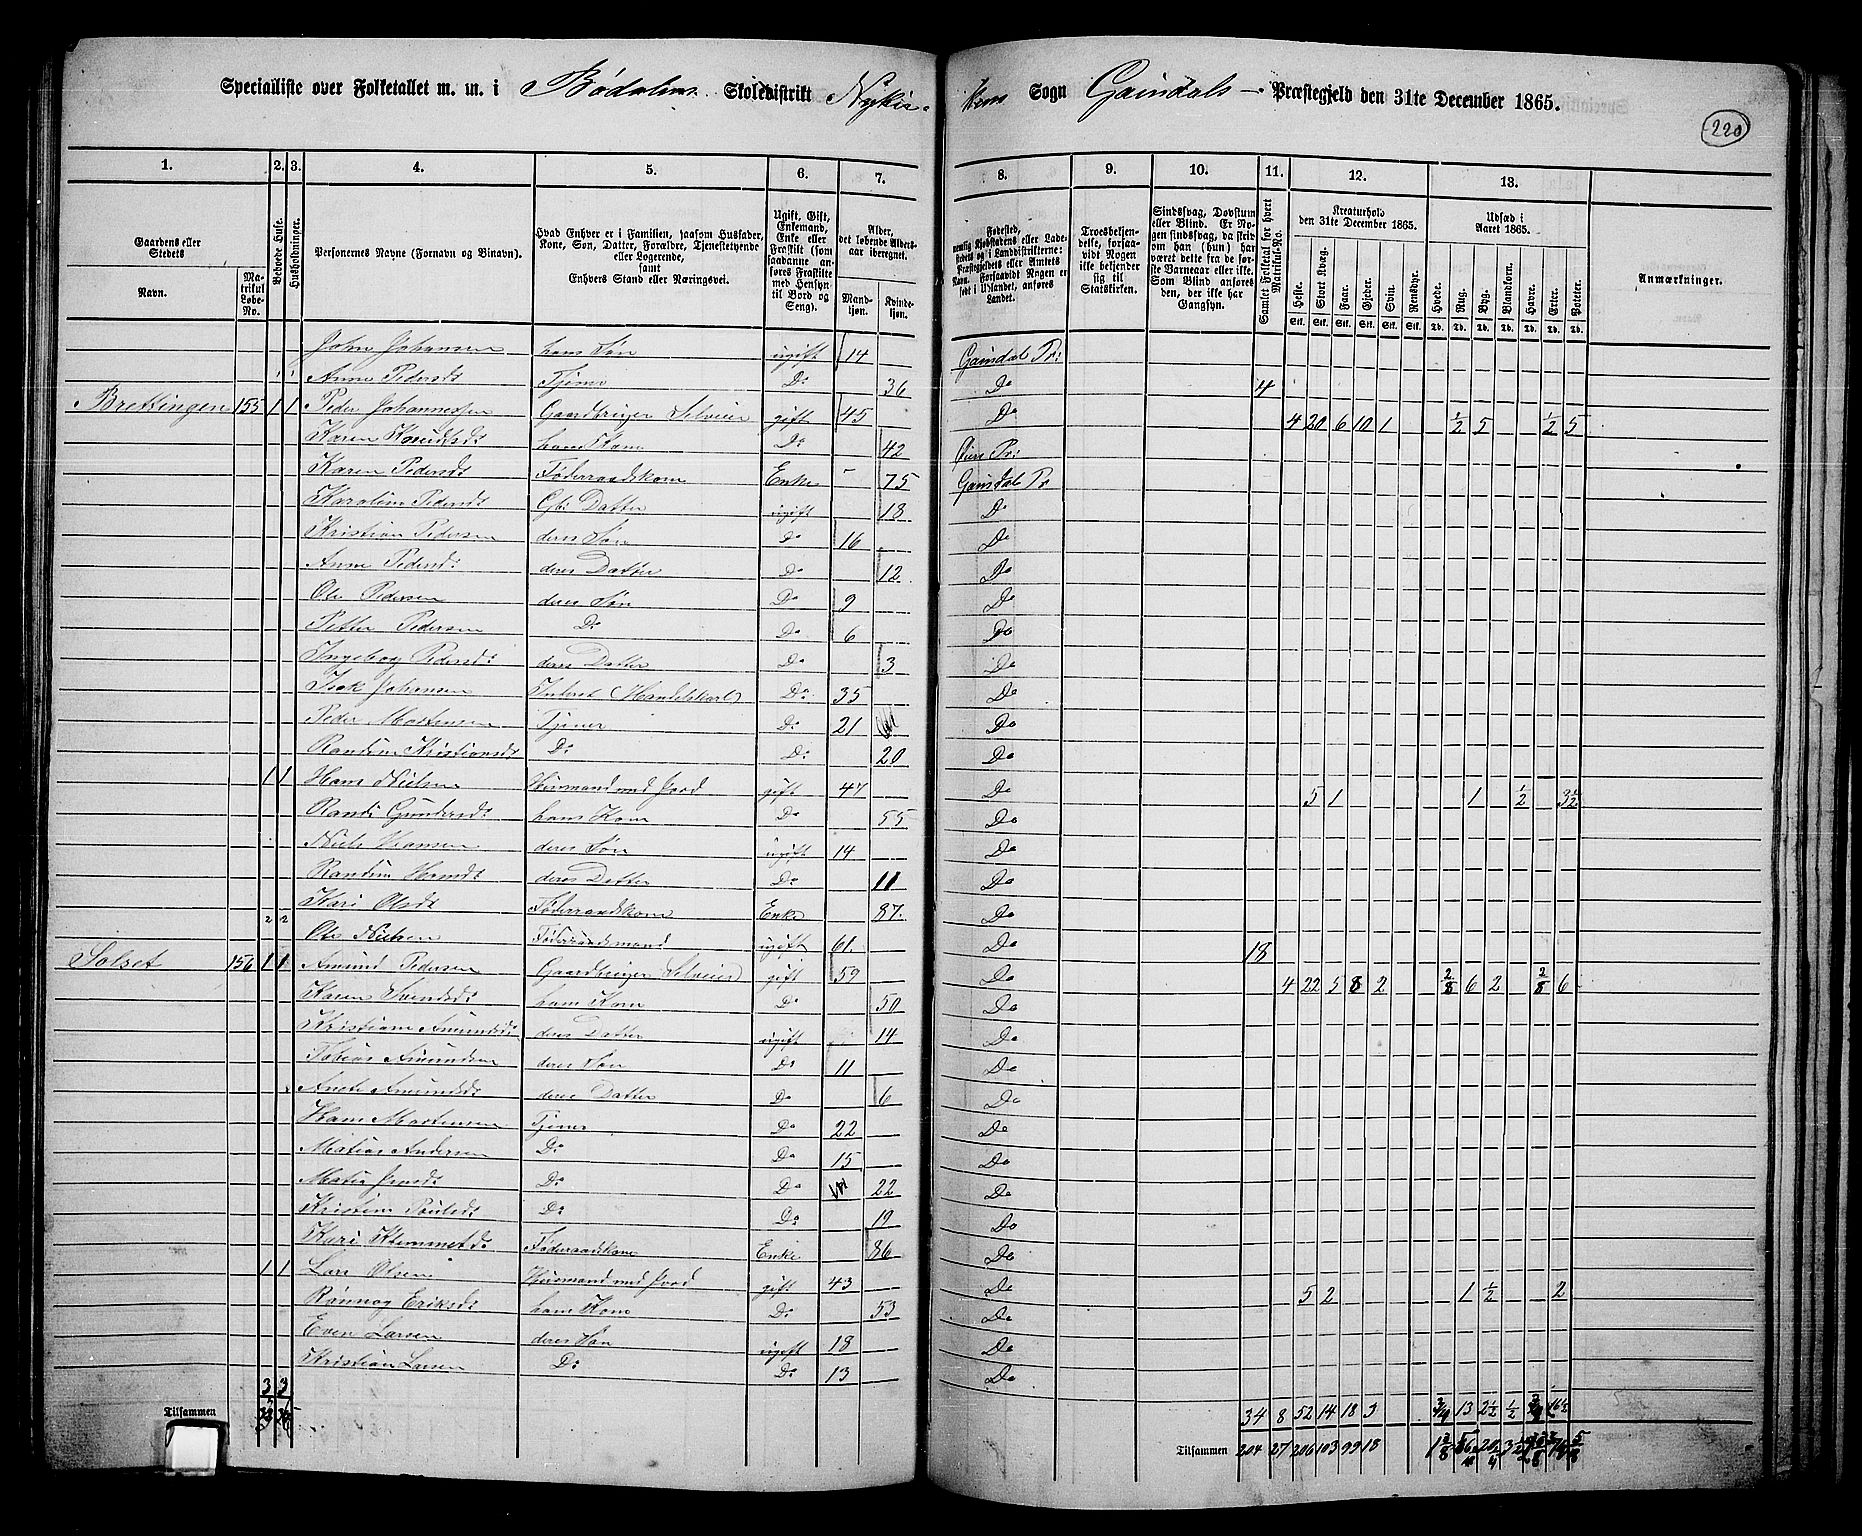 Specialliste over Folketallet m. m. i Bødalens Skoledistrikt Nykir- kens Sogn Gausdals Præstegjeld den 31te December 1865.
220
1. 2. 3. 4. 5. 6. 7. 8. 9. 10. 11. 12. 13.
Gaardens eller Stedets
Navn.
Matrikul Løbe-No.
Beboede Huse.
Husholdninger.
Personernes Navne (Fornavn og Binavn).
Hvad Enhver er i Familien, saasom Husfader, Kone, Søn, Datter, Forældre, Tjenestetyende eller Logerende, samt Enhvers Stand eller Næringsvei.
Ugift, Gift, Enkemand, Enke eller Fraskilt (som saadanne anføres Fraskilte med Hensyn til Bord og Seng).
Alder, det løbende Alders-aar iberegnet.
Mandkjøn. Kvindekjøn.
Fødested,
Troesbekjendelse, forsaavidt Nogen ikke bekjender sig til Statskirken.
Sindssvag, Døvstum eller Blind. Er Nogen sindssvag, da skrives om han (hun) har været dette fra de første Barneaar eller ikke. Som Blind anføres den, der ikke har Gangsyn.
Samlet Folketal for hvert Matrikul-No.
Kreaturhold den 31te December 1865.
Heste. Stort Kvæg. Faar. Gjeder. Svin. Rensdyr.
Udsæd i Aaret 1865.
Hvede. Rug. Byg. Blandkorn. Havre. Erter. Poteter.
Anmærkninger.
John Johansen hans Søn ugift 14 Gausdal Pr:
Anne Pedersdt Tjener Do 36 Do 4
Brettingen 155 1 1 Peder Johannessen Gaardbruger Selveier gift 45 Do 4 20 6 10 1 1/2 5 1/2 5
Karen Knudsdt hans Kone Do 42 Pr:
Karen Pedersdt Føderaadskone Enke - 75 Gausdal Pr
Karoline Pedersdt Gb: Datter ugift 18 Do
Kristian Pedersen deres Søn Do 16 Do
Anne Pedersdt deres Datter Do 12 Do
Ole Pedersen deres Søn Do 9 Do
Petter Pedersen Do Do 6 Do
Ingeborg Pedersdt deres Datter Do 3 Do
Isak Johansen Inderst (Handelskarl) Do 35 Do
Peder Mortensen Tjener Do 21 Do
Randine Kristiansdt Do Do 20 Do
1 1 Hans Nielsen Huusmand med Jord gift 47 Do 5 1 1 1/2 3 1/2
Randi Gundersdt hans Kone Do 55 Do
Niels Hansen deres Søn ugift 14 Do
Randine Hansdt deres Datter Do 11 Do
Kari Olsdt Føderaadskone Enke 87. Do
2 2 Ole Nielsen Føderaadsmand ugift 61. Do 18
Solset 156 1 1 Amund Pedersen Gaardbruger (Selveier) gift 59 Do 4 22 5 8 2 2/8 6 2 2/8 6
Karen Svendsdt hans Kone Do 50 Do
Kristiane Amundsdt deres Datter ugift 14 Do
Tobias Amundsen deres Søn Do 11 Do
Anete Amundsdt deres Datter Do 6 Do
Hans Mortensen Tjener Do 22 Do
Matias Andersen Do Do 15 Do
Matea Do Do 22 Do
Kristine Paulsdt Do Do 19 Do
Kari Klemmetsdt Føderaadskone Enke 86 Do
1 1 Lars Olsen Huusmand med Jord gift 43 Do 5 2 1 1/2 2
Rønnog Eriksdt hans Kone Do 53 Do
Even Larsen deres Søn ugift 18 Do
Kristian Larsen Do Do 13 Do
3 3
Tilsammen 34 8 52 14 18 3 3/4 13 2 1/2 1/2 16 1/2
Tilsammen 204 27 206 103 99 18